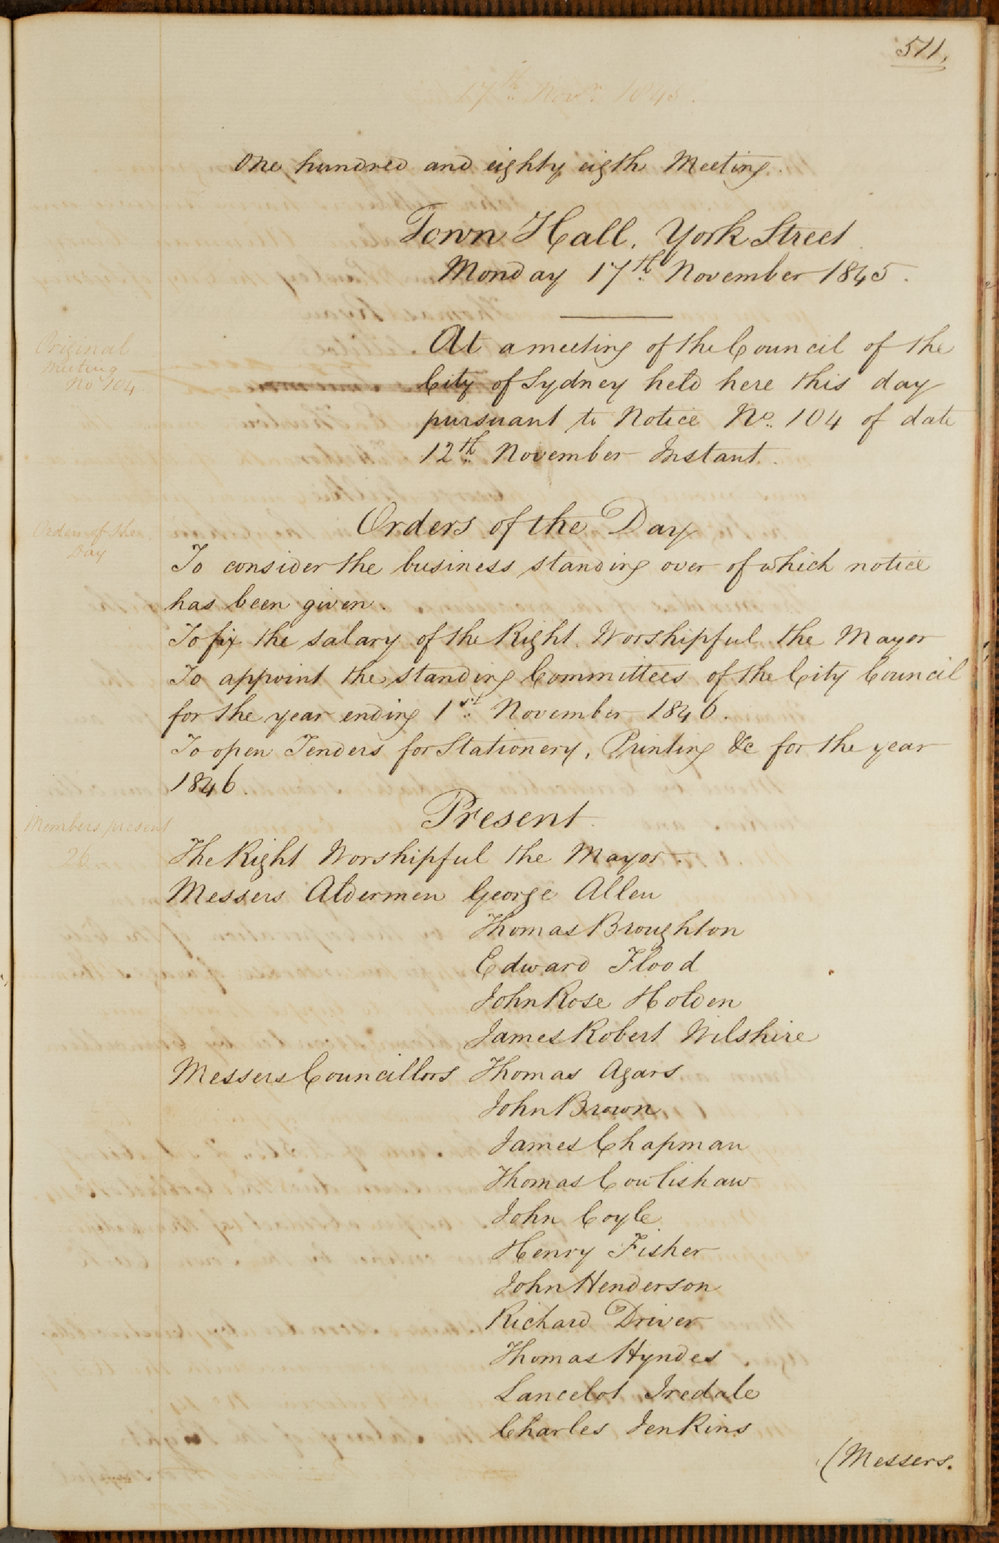 511.
17th Novr. 1845.
One hundred and eighty eigth Meeting.
Town Hall, York Street.
Monday 17th November 1845.
Original
Meeting
No 104.
At a meeting of the Council of the
City of Sydney held here this day
pursuant to Notice No. 104 of date
12th November Instant.
Orders of the Day
Orders of the
Day
To consider the business standing over of which notice
has been given.
To fix the salary of the Right Worshipful the Mayor
To appoint the standing Committees of the City Council
for the year ending 1st November 1846.
To open Tenders for Stationery, Printing &c for the year
1846.
Present.
Members present
26
The Right Worshipful the Mayor.
Messers Aldermen George Allen
Thomas Broughton
Edward Flood
John Rose Holden
James Robert Wilshire
Messers Councillors Thomas Agars
John Brown
James Chapman
Thomas Cowlishaw
John Coyle
Henry Fisher
John Henderson
Richard Driver
Thomas Hyndes
Lancelot Iredale
Charles Jenkins
(Messers.